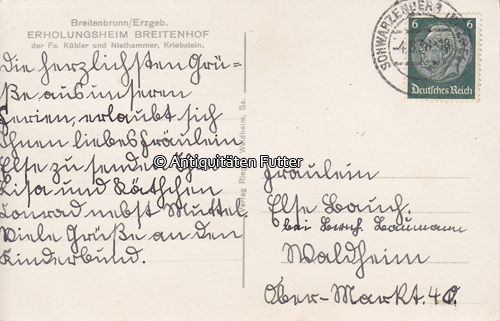 Breitenbrunn/Erzgeb.
ERHOLUNGSHEIM BREITENHOF
der Fa. Kübler und Niethammer, Kriebstein.
Die herzlichsten Grü-
ße aus unseren
Ferien, erlaubt sich
Ihnen liebes Fräulein
Else zu senden
Lisa und Käthchen
Konrad nebst Muttel.
Viele Grüße an den
Kinderbund.
Verlag Waldheim, Sa.
© Antiquitäten Futter
SCHWARZENBERG
6 6
Deutsches Reich
Fräulein
Else Bauch.
bei Baumann
Waldheim
Ober-Markt. 40.